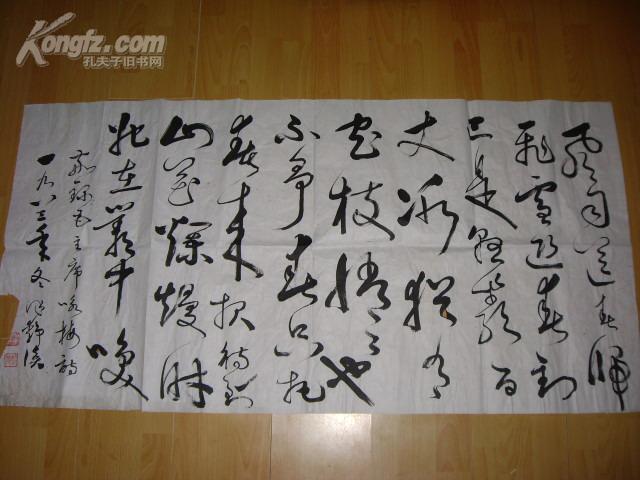 Kongfz.com
孔夫子旧书网
風雨送春歸
飛雪迎春到
已是懸崖百
丈冰猶有
花枝俏〻也
不争春只把
春来报待到
山花爛熳时
她在叢中笑
敬録毛主席咏梅詩
一九八三年冬